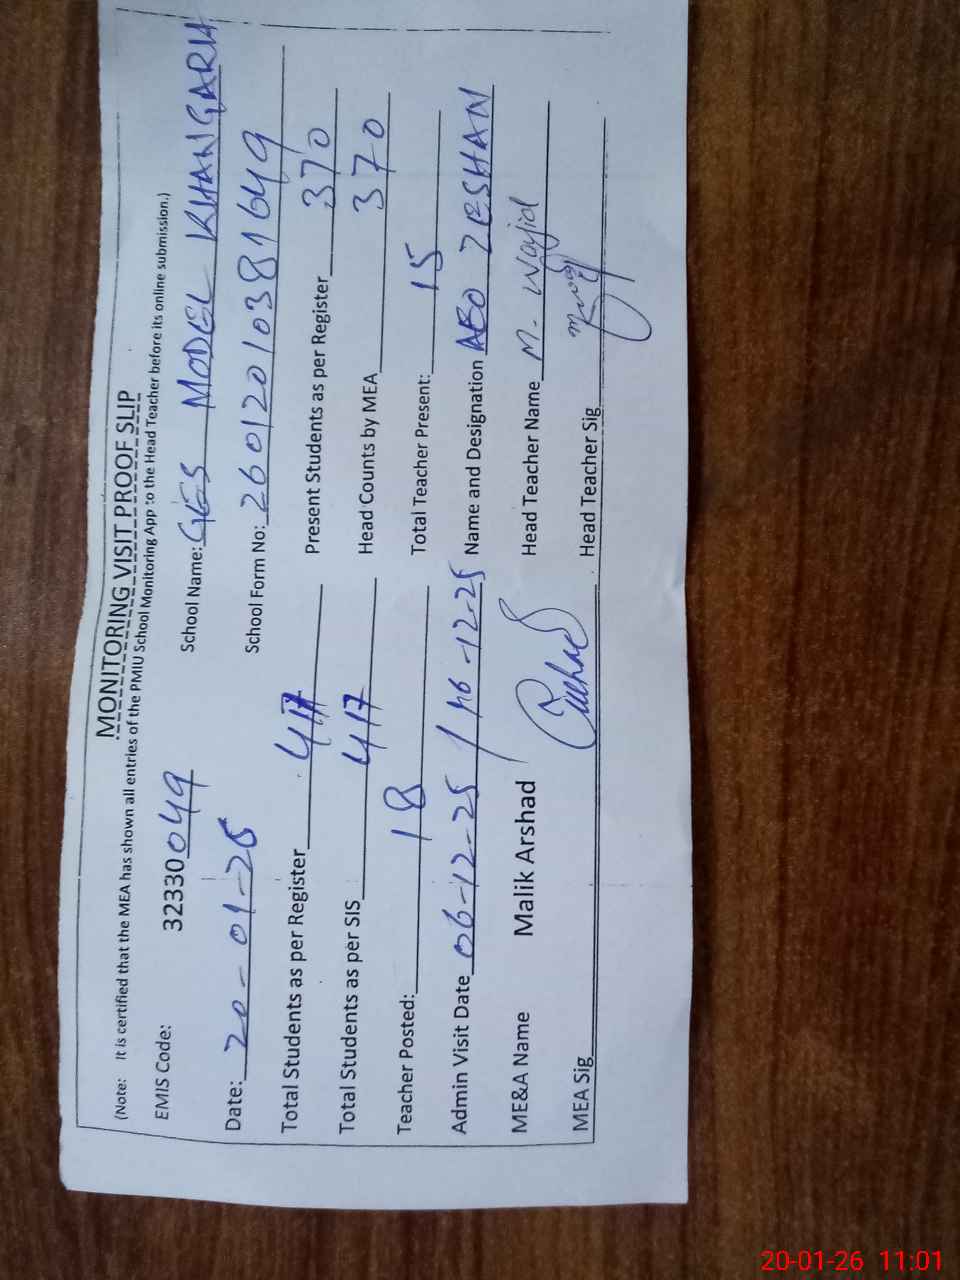 MONITORING VISIT PROOF SLIP
(Note: It is certified that the MEA has shown all entries of the PMIU School Monitoring App to the Head Teacher before its online submission.)
EMIS Code: 32330049 School Name: GES MODEL KHANGARH
Date: 20-01-26 School Form No: 26012010381649
Total Students as per Register 417 Present Students as per Register 370
Total Students as per SIS 417 Head Counts by MEA 370
Teacher Posted: 18 Total Teacher Present: 15
Admin Visit Date 06-12-25 / -12-25 Name and Designation AEO ZESHAN
ME&A Name Malik Arshad Head Teacher Name M. Wajid
MEA Sig Head Teacher Sig
20-01-26 11:01